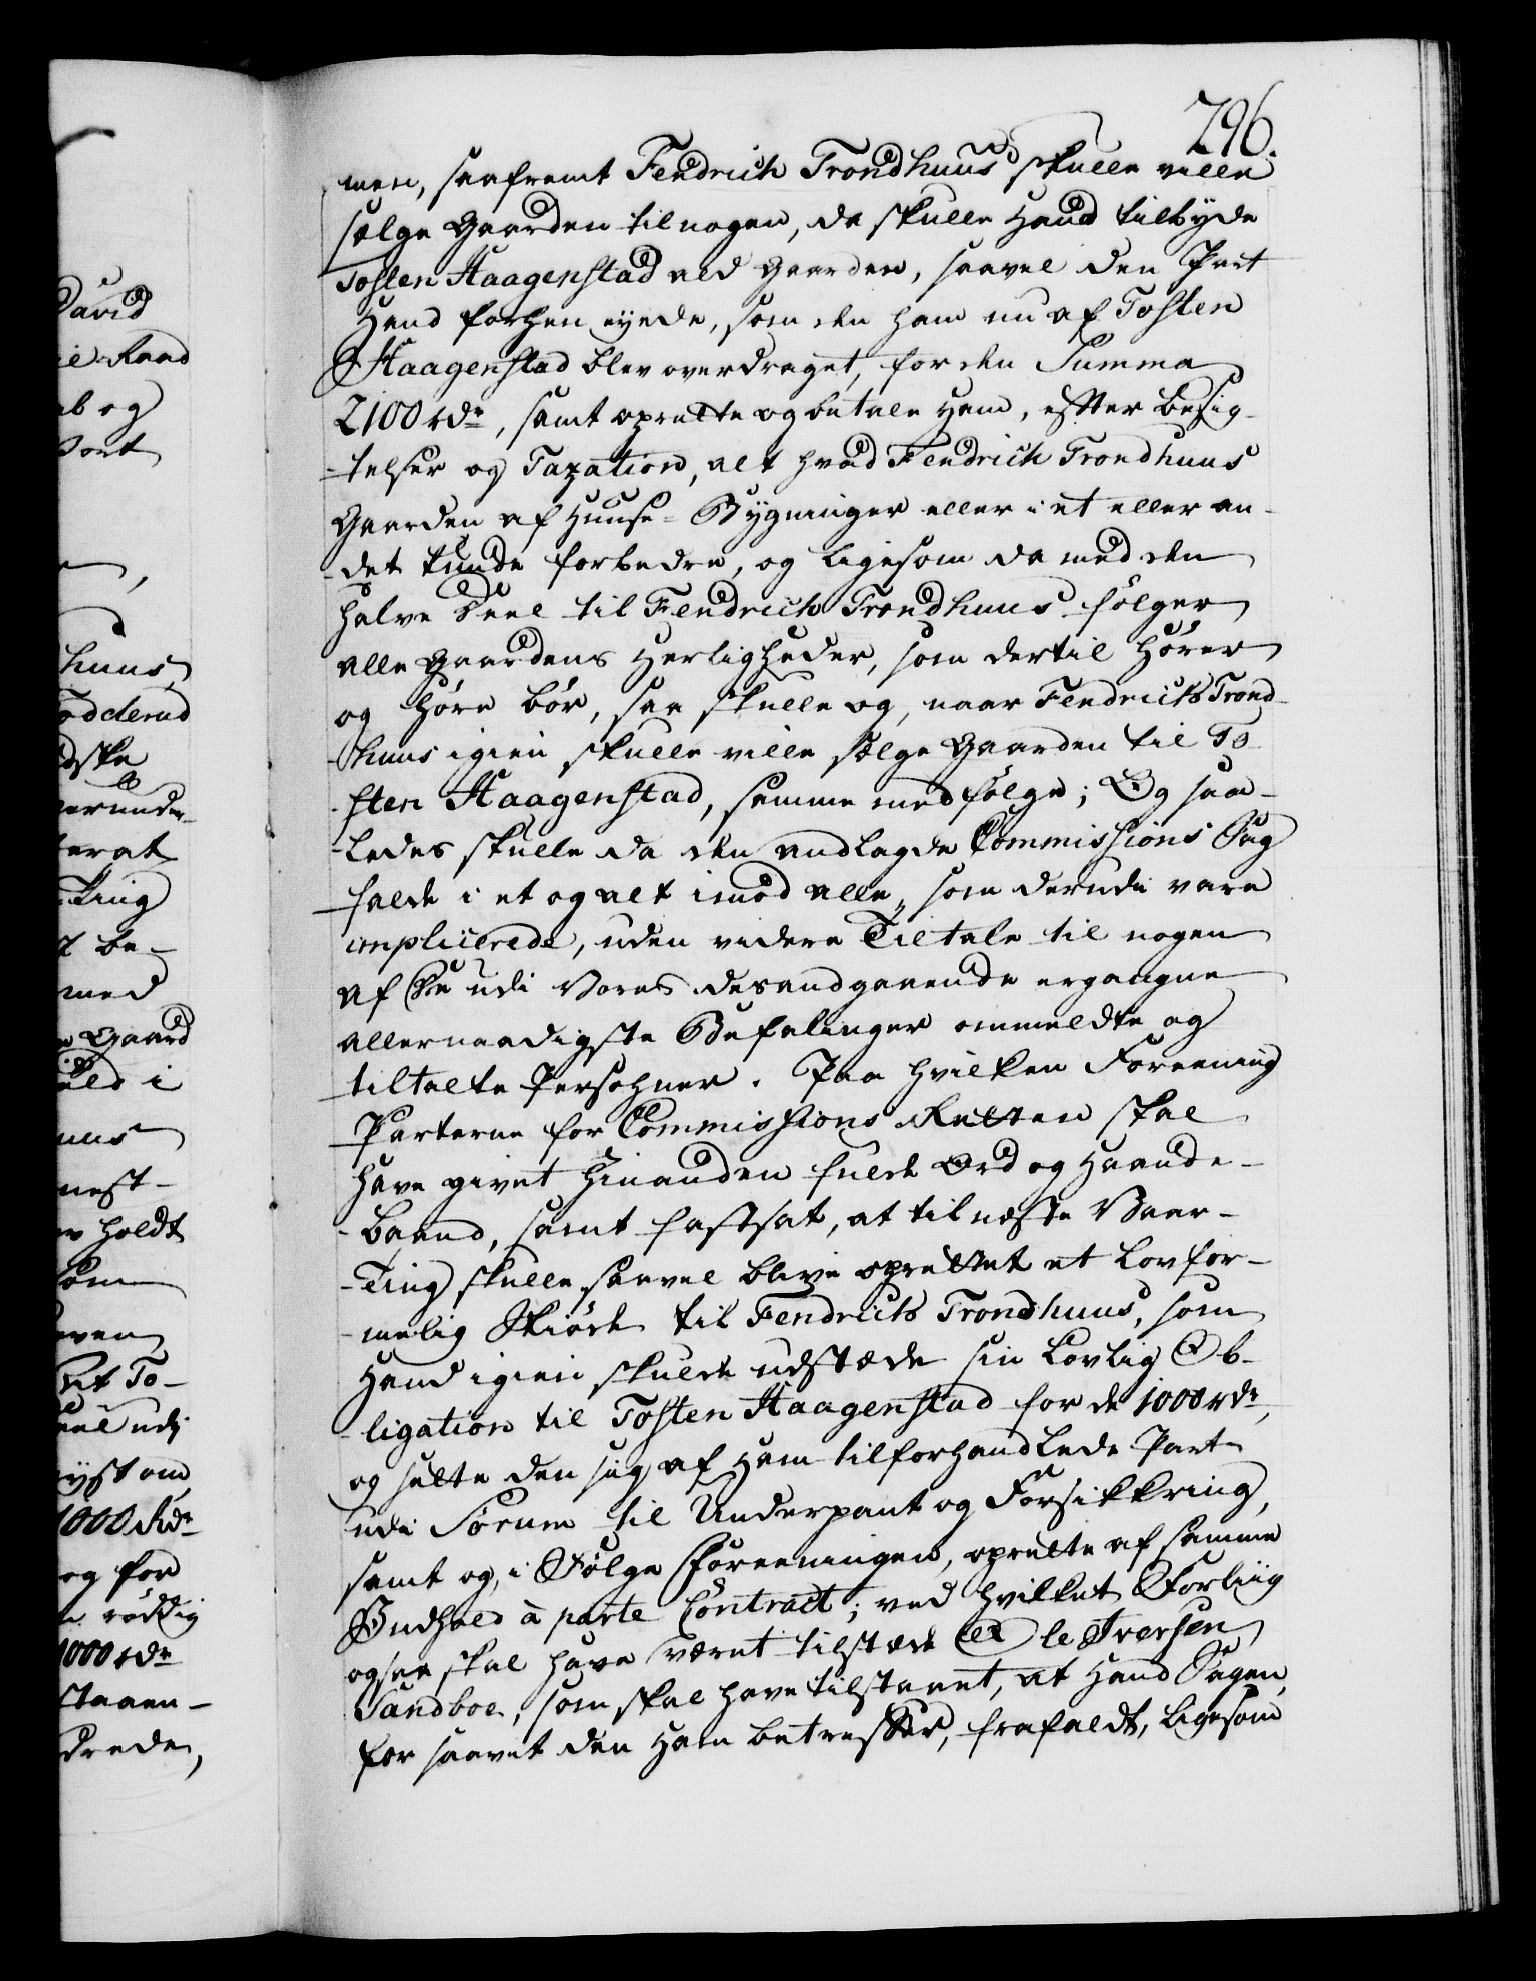 296.
men, saafremt Fendrich Trondhuus skulle ville
sælge Gaarden til nogen, da skulle Hand tilbyde
Tosten Haagenstad ald Gaarden, saavel den Part
Hand forhen eyede, som den ham nu af Tosten
Haagenstad blev overdraget, for den Summa
2100 rdr, samt oprette og betale Ham, efter Besig-
-telser og Taxation, alt hvad Fendrich Trondhuus
Gaarden af Huuse-Bygninger eller i et eller an-
-det kunde forbedre, og ligesom da med den
halve Deel til Fendrich Trondhuus følger
alle Gaardens Herligheder, som dertil hører
og høre bør, saa skulle og, naar Fendrich Trond-
-huus igien skulle ville sælge Gaarden til To-
-sten Haagenstad, samme medfølge; Og saa-
-ledes skulle da den anlagde Commissions Sag
falde i et og alt imod alle, som derudi vare
implicerede, uden videre Tiltale til nogen
af De udi Vores desangaaende ergangne
allernaadigste Befalinger ommeldte og
tiltalte Persohner. Paa hvilken Foreening
Parterne for Commissions Retten skal
have givet hinanden fulde Ord og Haande-
-baand, samt fastsat, at til næste Vaar-
-Ting skulle saavel blive oprettet et lovfor-
-melig Skiøde til Fendrich Trondhuus, som
Hand igien skulde udstæde sin lovlig Ob-
-ligation til Tosten Haagenstad for de 1000 rdr,
og sætte den sig af Ham tilforhandlede Part
udi Sorum til Underpant og Forsikkring,
samt og, i Følge Foreeningen, oprette af samme
Indhold à parte Contract; ved hvilket Forliig
ogsaa skal have været tilstæde Ole Iversen
Sandboe, som skal have tilstaaet, at Hand Sagen,
for saavit den Ham betreffer, frafaldt, ligesom
David
Raad
og
huus,
med
Gaard
i
holdt
To-
1000 Rdr
og for
1000 rdr